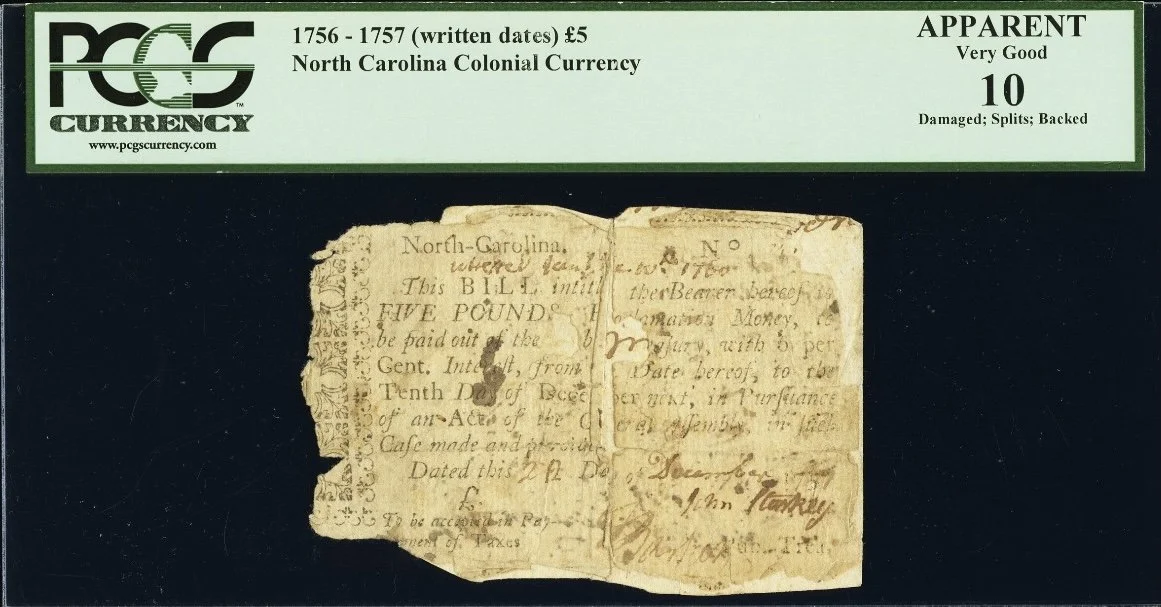 PCGS
CURRENCY
™
www.pcgscurrency.com
1756 - 1757 (written dates) £5
North Carolina Colonial Currency
APPARENT
Very Good
10
Damaged; Splits; Backed
North-Carolina. No
1760
This BILL intitl the Bearer hereof to
FIVE POUNDS P oclamation Money, to
be paid out of the b easury, with 6 per
Cent. Interest, from Date hereof, to the
Tenth Day of Dece ber next, in Pursuance
of an Act of the G eral Assembly, in such
Case made and provid
Dated this 2 Da of December
John Starkey
£.
To be accepted in Pay-
ment of Taxes Trea.